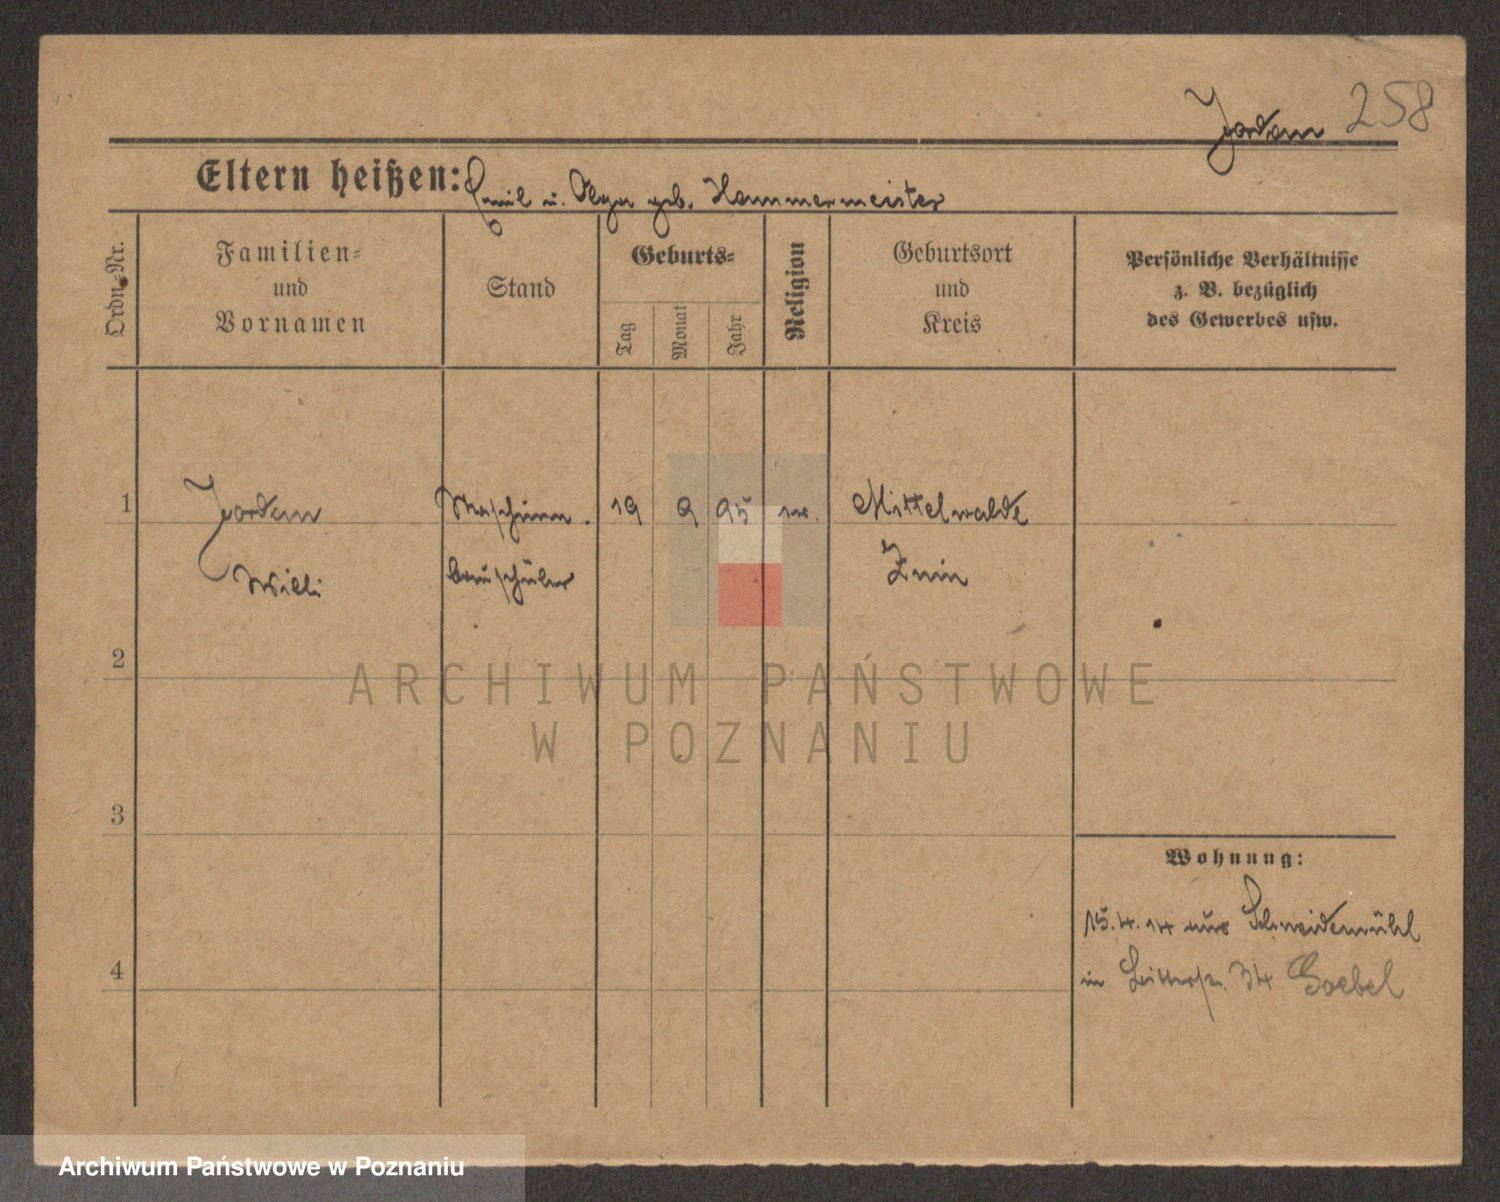 258
Jordan
Eltern heißen: Emil u. Olga geb. Hammermeister
Ordn.-Nr.
Familien- und Vornamen
Stand
Geburts-
Tag
Monat
Jahr
Religion
Geburtsort und Kreis
Persönliche Verhältnisse
z. B. bezüglich
des Gewerbes usw.
1
Jordan
Maschinen-
19
9
95
ev.
Mittelwalde
Willi
bauschüler
Znin
2
3
4
Wohnung:
15.4.14 aus Schneidemühl
in 34 Goebel
ARCHIWUM PAŃSTWOWE
W POZNANIU
Archiwum Państwowe w Poznaniu